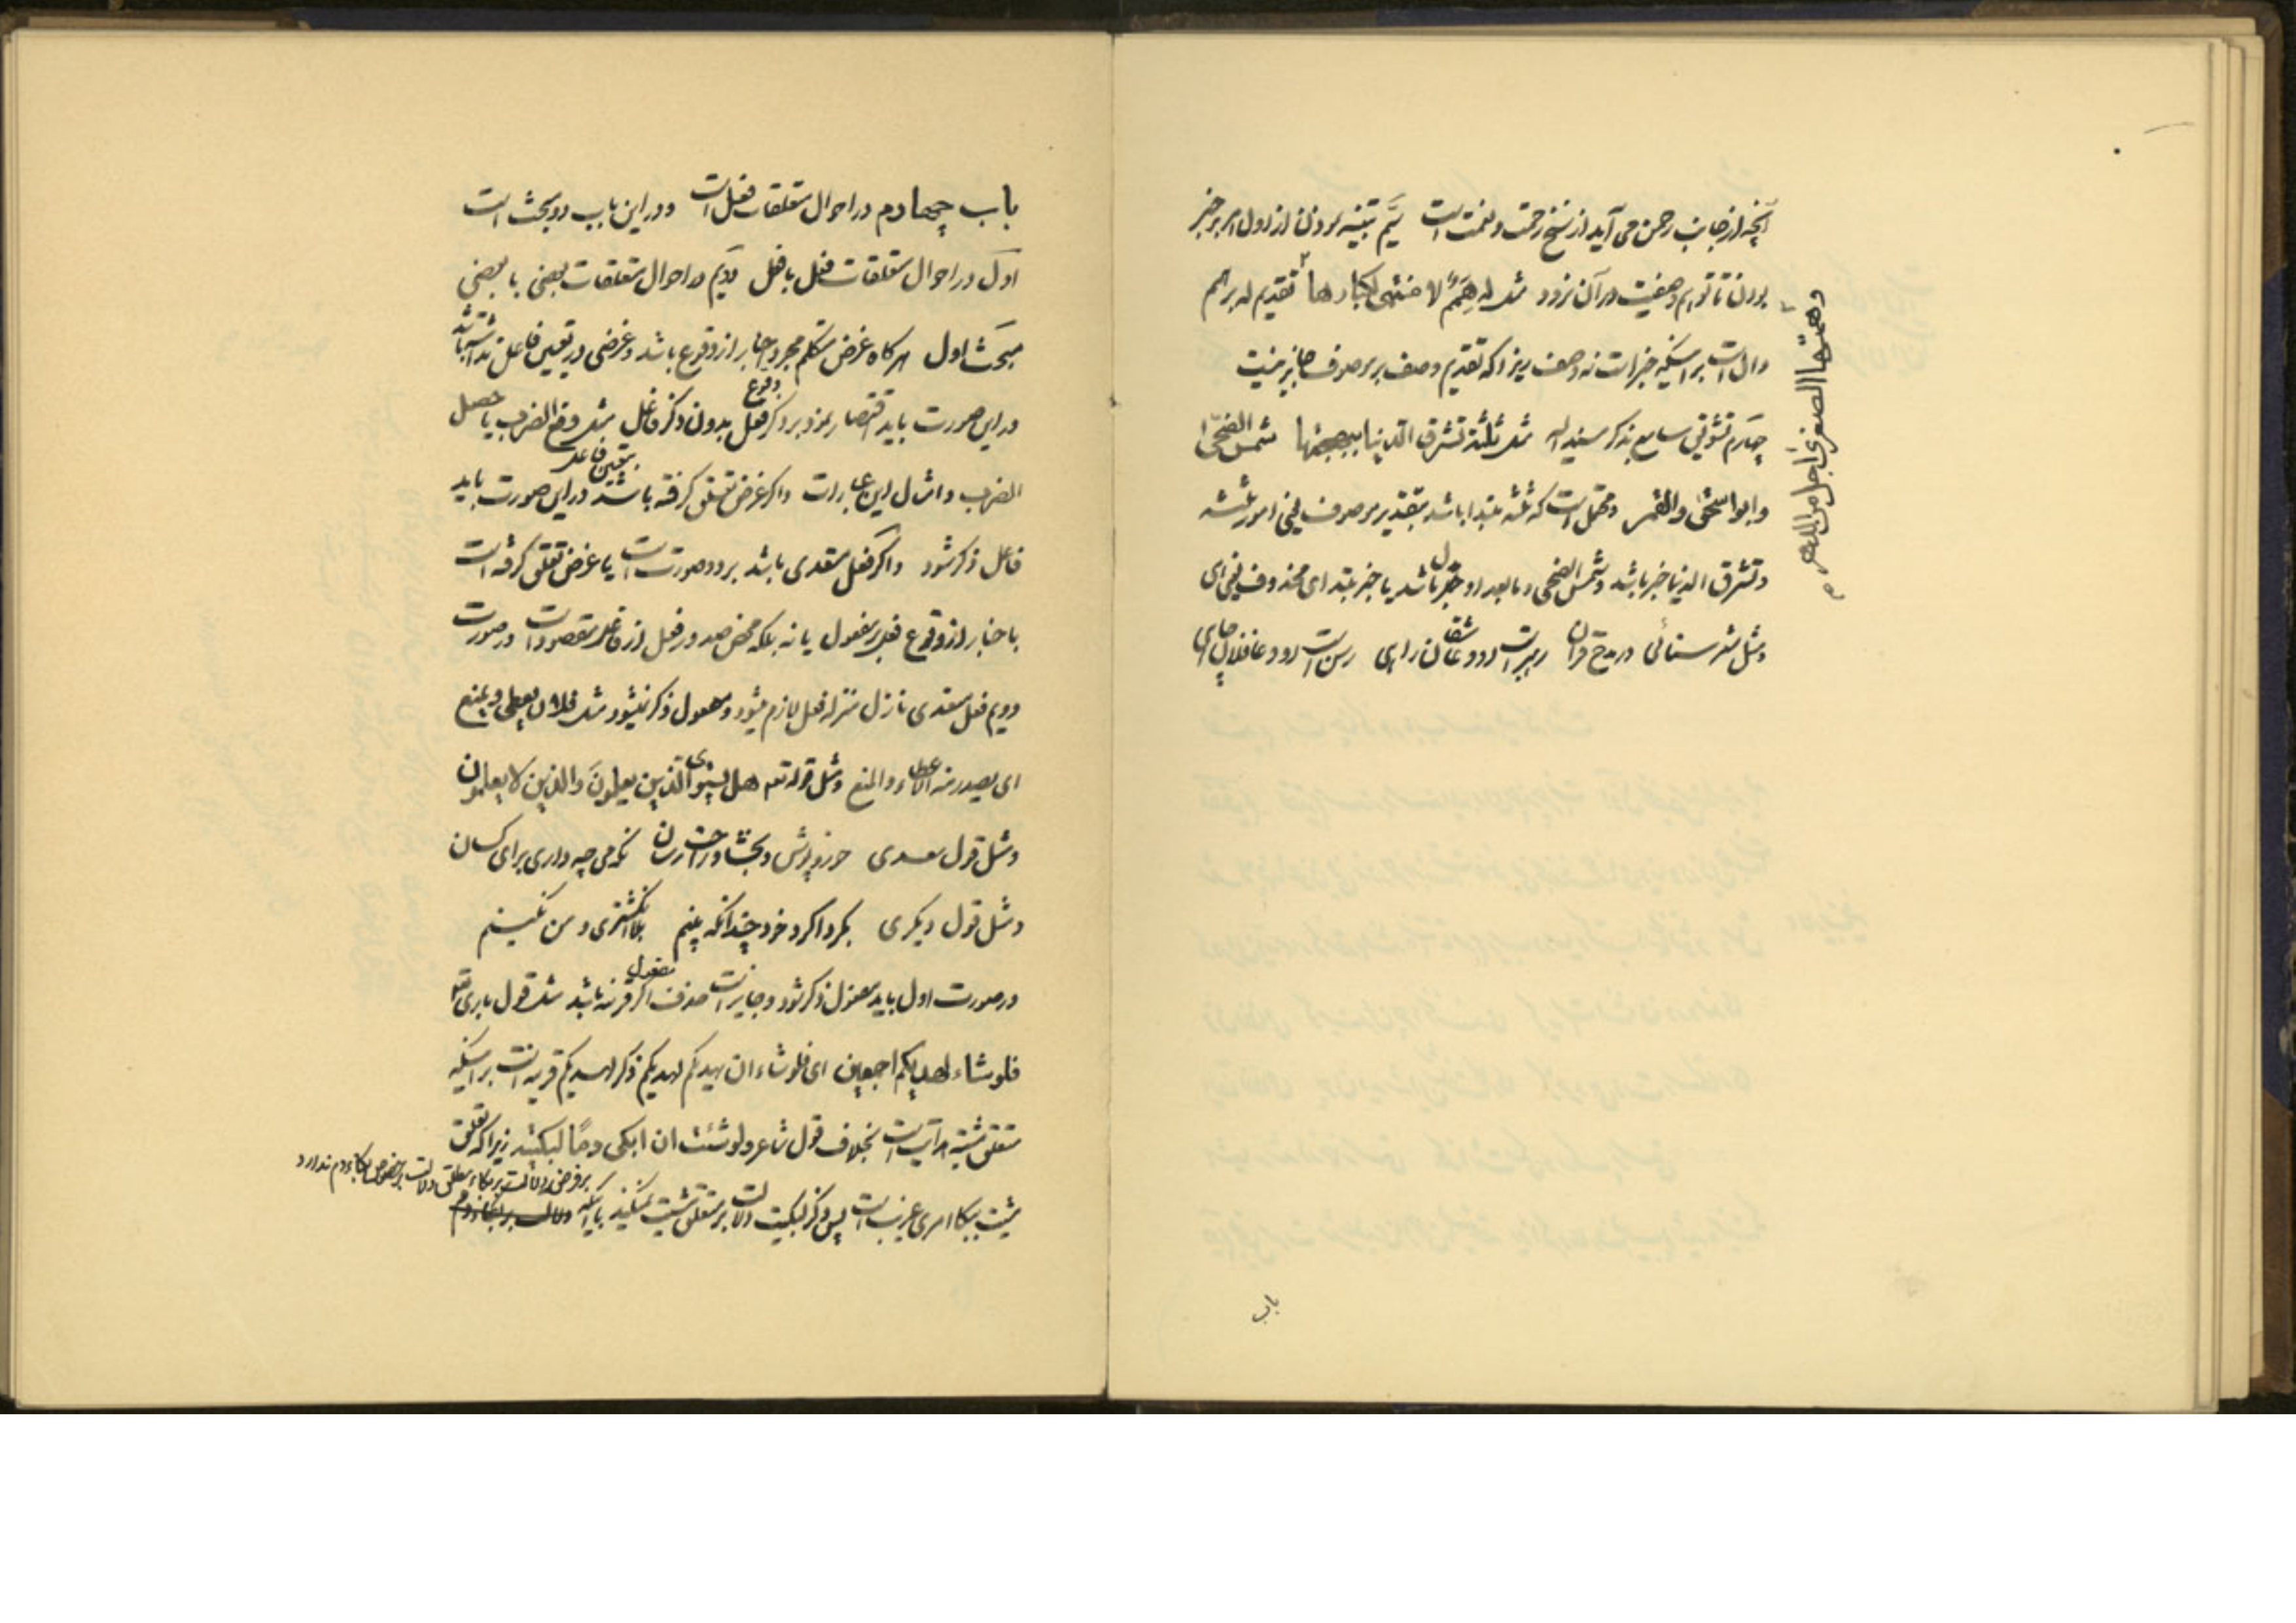 آنچه از جانب رحمن می آید از سنخ رحمت و نعمت است سیم تنبیه بودن از اول امر بر خبر
بودن تا توهم وصفیت در آن نرود مثل له همم لا منتهی لکبارها تقدیم له بر همم
وهمته الصغری اجل من الدهر
دال است بر اینکه خبر است نه وصف زیرا که تقدیم وصف بر موصوف جایز نیست
چهارم تشویق سامع بذکر مسند الیه مثل ثلثة تشرق الدنیا ببهجتها شمس الضحی
وابو اسحق والقمر و محتمل است که ثلثه مبتدا باشد بتقدیر موصوف یعنی امور ثلثه
و تشرق الدنیا خبر باشد و شمس الضحی و ما بعد او بدل باشد یا خبر مبتدای محذوف یعنی ای
و مثل شعر سنائی در مدح قران رهبر است او و عاشقان راهی رسن است او و غافلان چاهی
باب
باب چهارم در احوال متعلقات فعل است و در این باب دو بحث است
اول در احوال متعلقات فعل با فعل دویم در احوال متعلقات بعضی با بعضی
مبحث اول هر گاه غرض متکلم مجرد اخبار از وقوع باشد و غرضی در تعیین فاعل نداشته باشد
در این صورت باید اقتصار نمود بر ذکر وقوع فعل بدون ذکر فاعل مثل وقع الضرب یا حصل
الضرب و امثال این عبارات و اگر غرض تعلق گرفته باشد بتعیین فاعل در این صورت باید
فاعل ذکر شود و اگر فعل متعدی باشد بر دو صورت است یا غرض تعلق گرفته است
باخبار از وقوع فعل بر مفعول یا نه بلکه محض صدور فعل از فاعل مقصود است در صورت
دویم فعل متعدی نازل منزله فعل لازم میشود و مفعول ذکر نمیشود مثل فلان یعطی و یمنع
ای یصدر منه الاعطاء والمنع و مثل قوله تعه هل یستوی الذین یعلمون والذین لا یعلمون
و مثل قول سعدی خور و پوش و بخشا و راحت رسان نگه می چه داری برای کسان
و مثل قول دیگری بگرد اگرد خود چندانکه بینم بلا انگشتری و من نگینم
در صورت اول باید مفعول ذکر شود و جایز است حذف مفعول اگر قرینه باشد مثل قول باری تعه
فلو شاء لهدیکم اجمعین ای فلو شاء ان یهدیکم لهدیکم ذکر لهدیکم قرینه است بر اینکه
متعلق مشیت هدایت است بخلاف قول شاعر ولو شئت ان ابکی دما لبکیته زیرا که تعلق
مشیت ببکا امری غریب است پس ذکر لبکیت دلالت بر متعلق مشیت نمیکند با اینکه
بر فرض دلالت بر بکاء مطلق دلالت بر خصوص بکاء دم ندارد